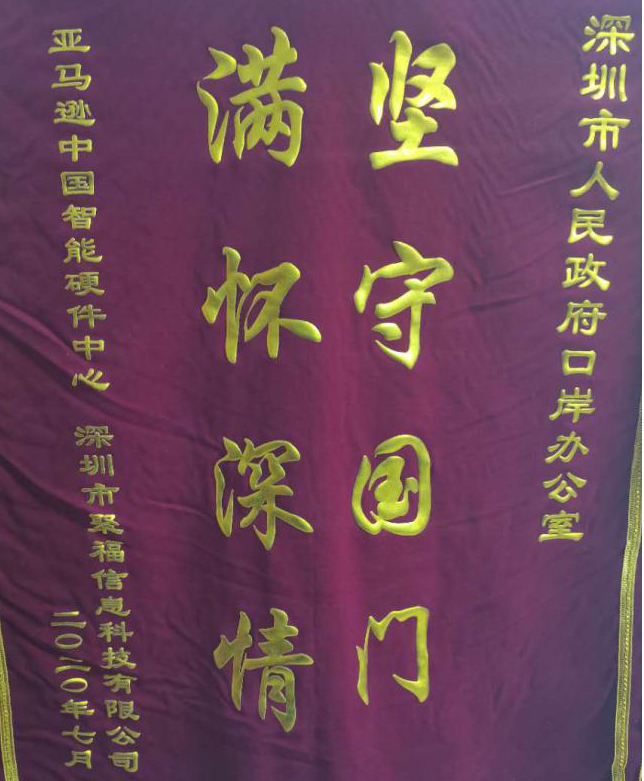 深圳市人民政府口岸办公室
坚守国门
满怀深情
亚马逊中国智能硬件中心
深圳市聚福信息科技有限公司
二〇二〇年七月